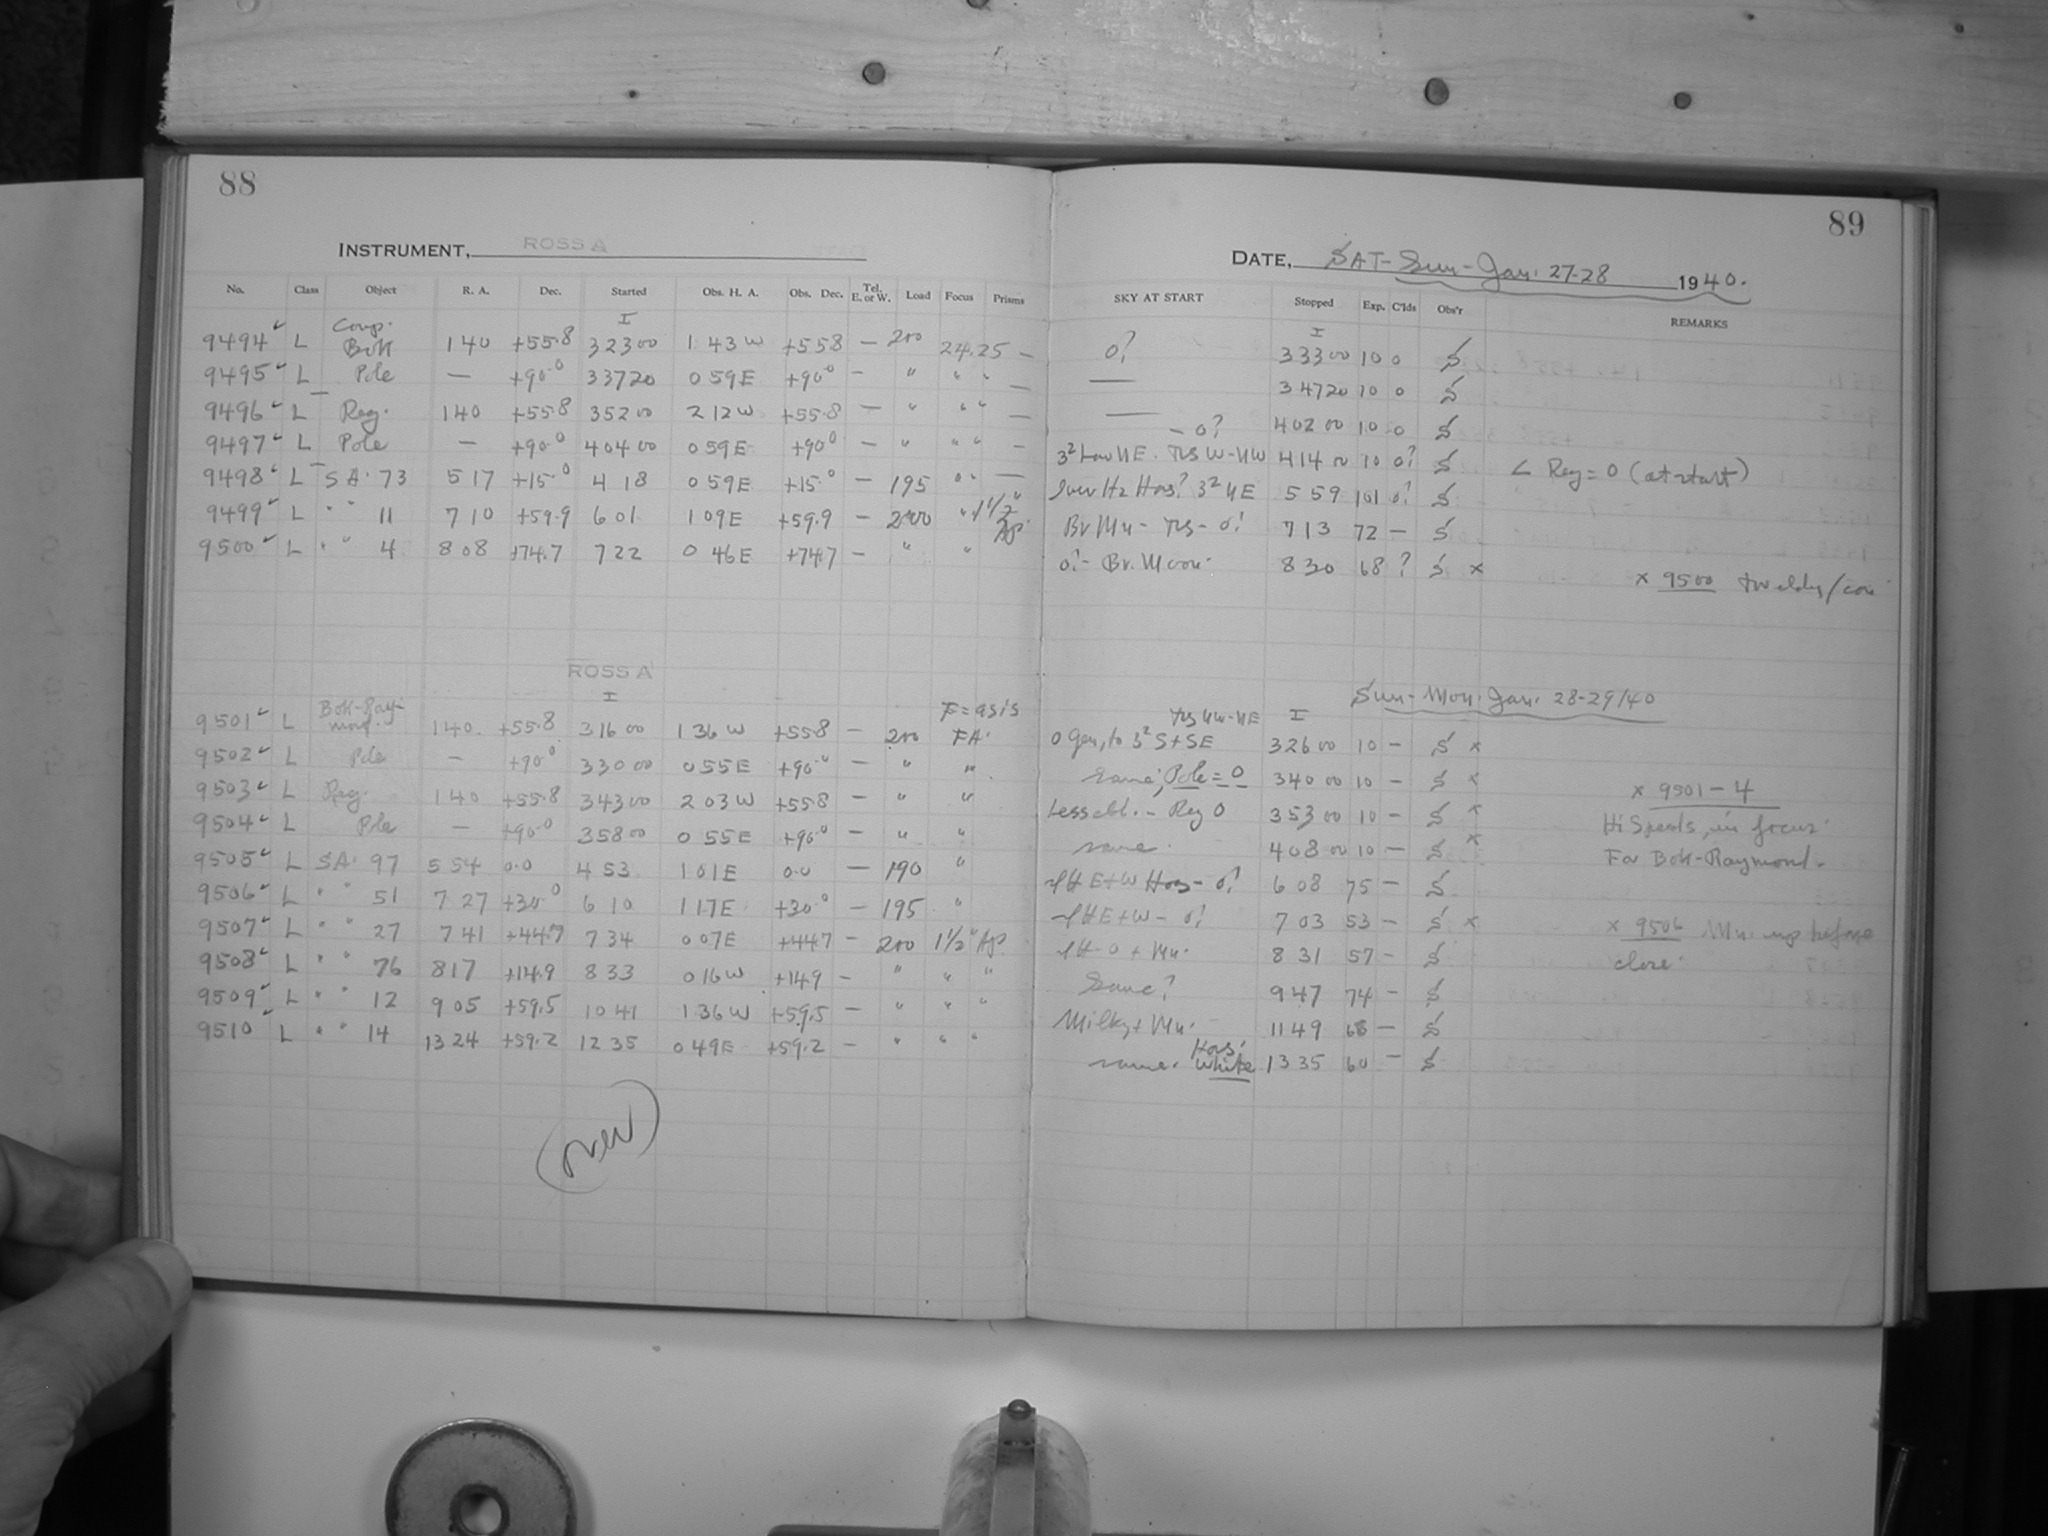 88
INSTRUMENT, ROSS A
No. Class Object R. A. Dec. Started Obs. H. A. Obs. Dec. Tel. E. or W. Load Focus Prisms
I
Comp.
9494 L Bok 140 +55.8 32300 1 43 W +55.8 — 200 24.25 —
9495 L Pole — +90.0 33720 0 59 E +90.0 — " " " —
9496 L Reg. 140 +55.8 35200 2 12 W +55.8 — " " " —
9497 L Pole — +90.0 40400 0 59 E +90.0 — " " " —
9498 L S A. 73 5 17 +15.0 4 18 0 59 E +15.0 — 195 " —
9499 L " " 11 7 10 +59.9 6 01 1 09 E +59.9 — 200 " 1 1/2" Ap.
9500 L " " 4 8 08 +74.7 7 22 0 46 E +74.7 — " "
ROSS A
I
F = as is
9501 L Bok-Raymond. 140 +55.8 31600 1 36 W +55.8 — 200 FA.
9502 L Pole — +90.0 33000 0 55 E +90.0 — " "
9503 L Reg. 140 +55.8 34300 2 03 W +55.8 — " "
9504 L Pole — +90.0 35800 0 55 E +90.0 — " "
9505 L SA. 97 5 54 0.0 4 53 1 01 E 0.0 — 190 "
9506 L " " 51 7 27 +30.0 6 10 1 17 E +30.0 — 195 "
9507 L " " 27 7 41 +44.7 7 34 0 07 E +44.7 — 200 1 1/2" Ap.
9508 L " " 76 8 17 +14.9 8 33 0 16 W +14.9 — " " "
9509 L " " 12 9 05 +59.5 10 41 1 36 W +59.5 — " " "
9510 L " " 14 13 24 +59.2 12 35 0 49 E +59.2 — " " "
(over)
89
DATE, SAT-Sun-Jan. 27-28 1940.
SKY AT START Stopped Exp. C'lds Obs'r REMARKS
I
0? 33300 10 0 S
— 34720 10 0 S
— 40200 10 0 S
— 0?
3² Low NE. W-NW 41400 10 0? S < Reg = 0 (at start)
Hz Has? 3² NE 5 59 101 0? S
Br Mn - 0? 7 13 72 — S
0? - Br. Moon. 8 30 68 ? S x
x 9500
Sun-Mon. Jan. 28-29/40
NW-NE I
0 Gen, to 3² S+SE 32600 10 — S x
same; Pole = 0 34000 10 — S x
Less - Reg 0 35300 10 — S x
same. 40800 10 — S x
x 9501-4
Hi Speeds, in focus.
For Bok-Raymond.
E+W Has - 0? 6 08 75 — S
E+W - 0? 7 03 53 — S x
x 9506 Mn. up before
close.
0 + Mn. 8 31 57 — S
Same? 9 47 74 — S
Milky + Mn. 11 49 68 — S
same. Has. White 13 35 60 — S